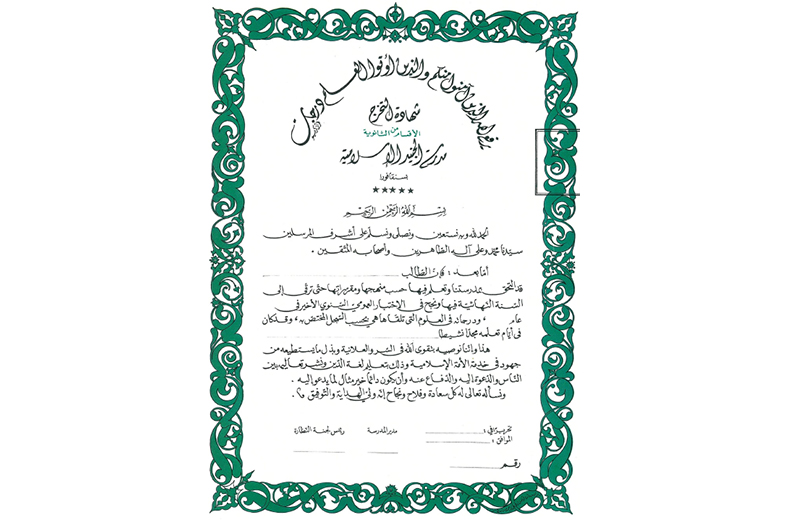 يرفع الله الذين آمنوا منكم والذين أوتوا العلم درجات
شهادة التخرج
من الأقسام الثانوية
مدرسة الجنيد الإسلامية
بسنغافورا
بسم الله الرحمن الرحيم
الحمد لله وبه نستعين ونصلي ونسلم على أشرف المرسلين
سيدنا محمد وعلى آله الطاهرين وأصحابه المتقين .
أما بعد : فإن الطالب
قد التحق بمدرستنا وتعلم فيها حسب منهجها ومقرراتها حتى ترقى إلى
السنة النهائية فيها ونجح في الاختبار العمومي السنوي الأخير في
عام ، ودرجاته في العلوم التي تلقاها هي بحسب السجل المختص به ، وقد كان
في أيام تعلمه مجدا نشيطا
هذا وإننا نوصيه بتقوى الله في السر والعلانية وبذل ما يستطيعه من
جهود في خدمة الأمة الإسلامية وذلك بتعليم لغة الدين ونشر تعاليمه بين
الناس والدعوة إليه والدفاع عنه وأن يكون دائما خير مثال لما يدعو إليه .
ونسأله تعالى له كل سعادة وفلاح ونجاح إنه ولي الهداية والتوفيق
تحريرا في : مدير المدرسة رئيس لجنة النظارة
الموافق :
رقم